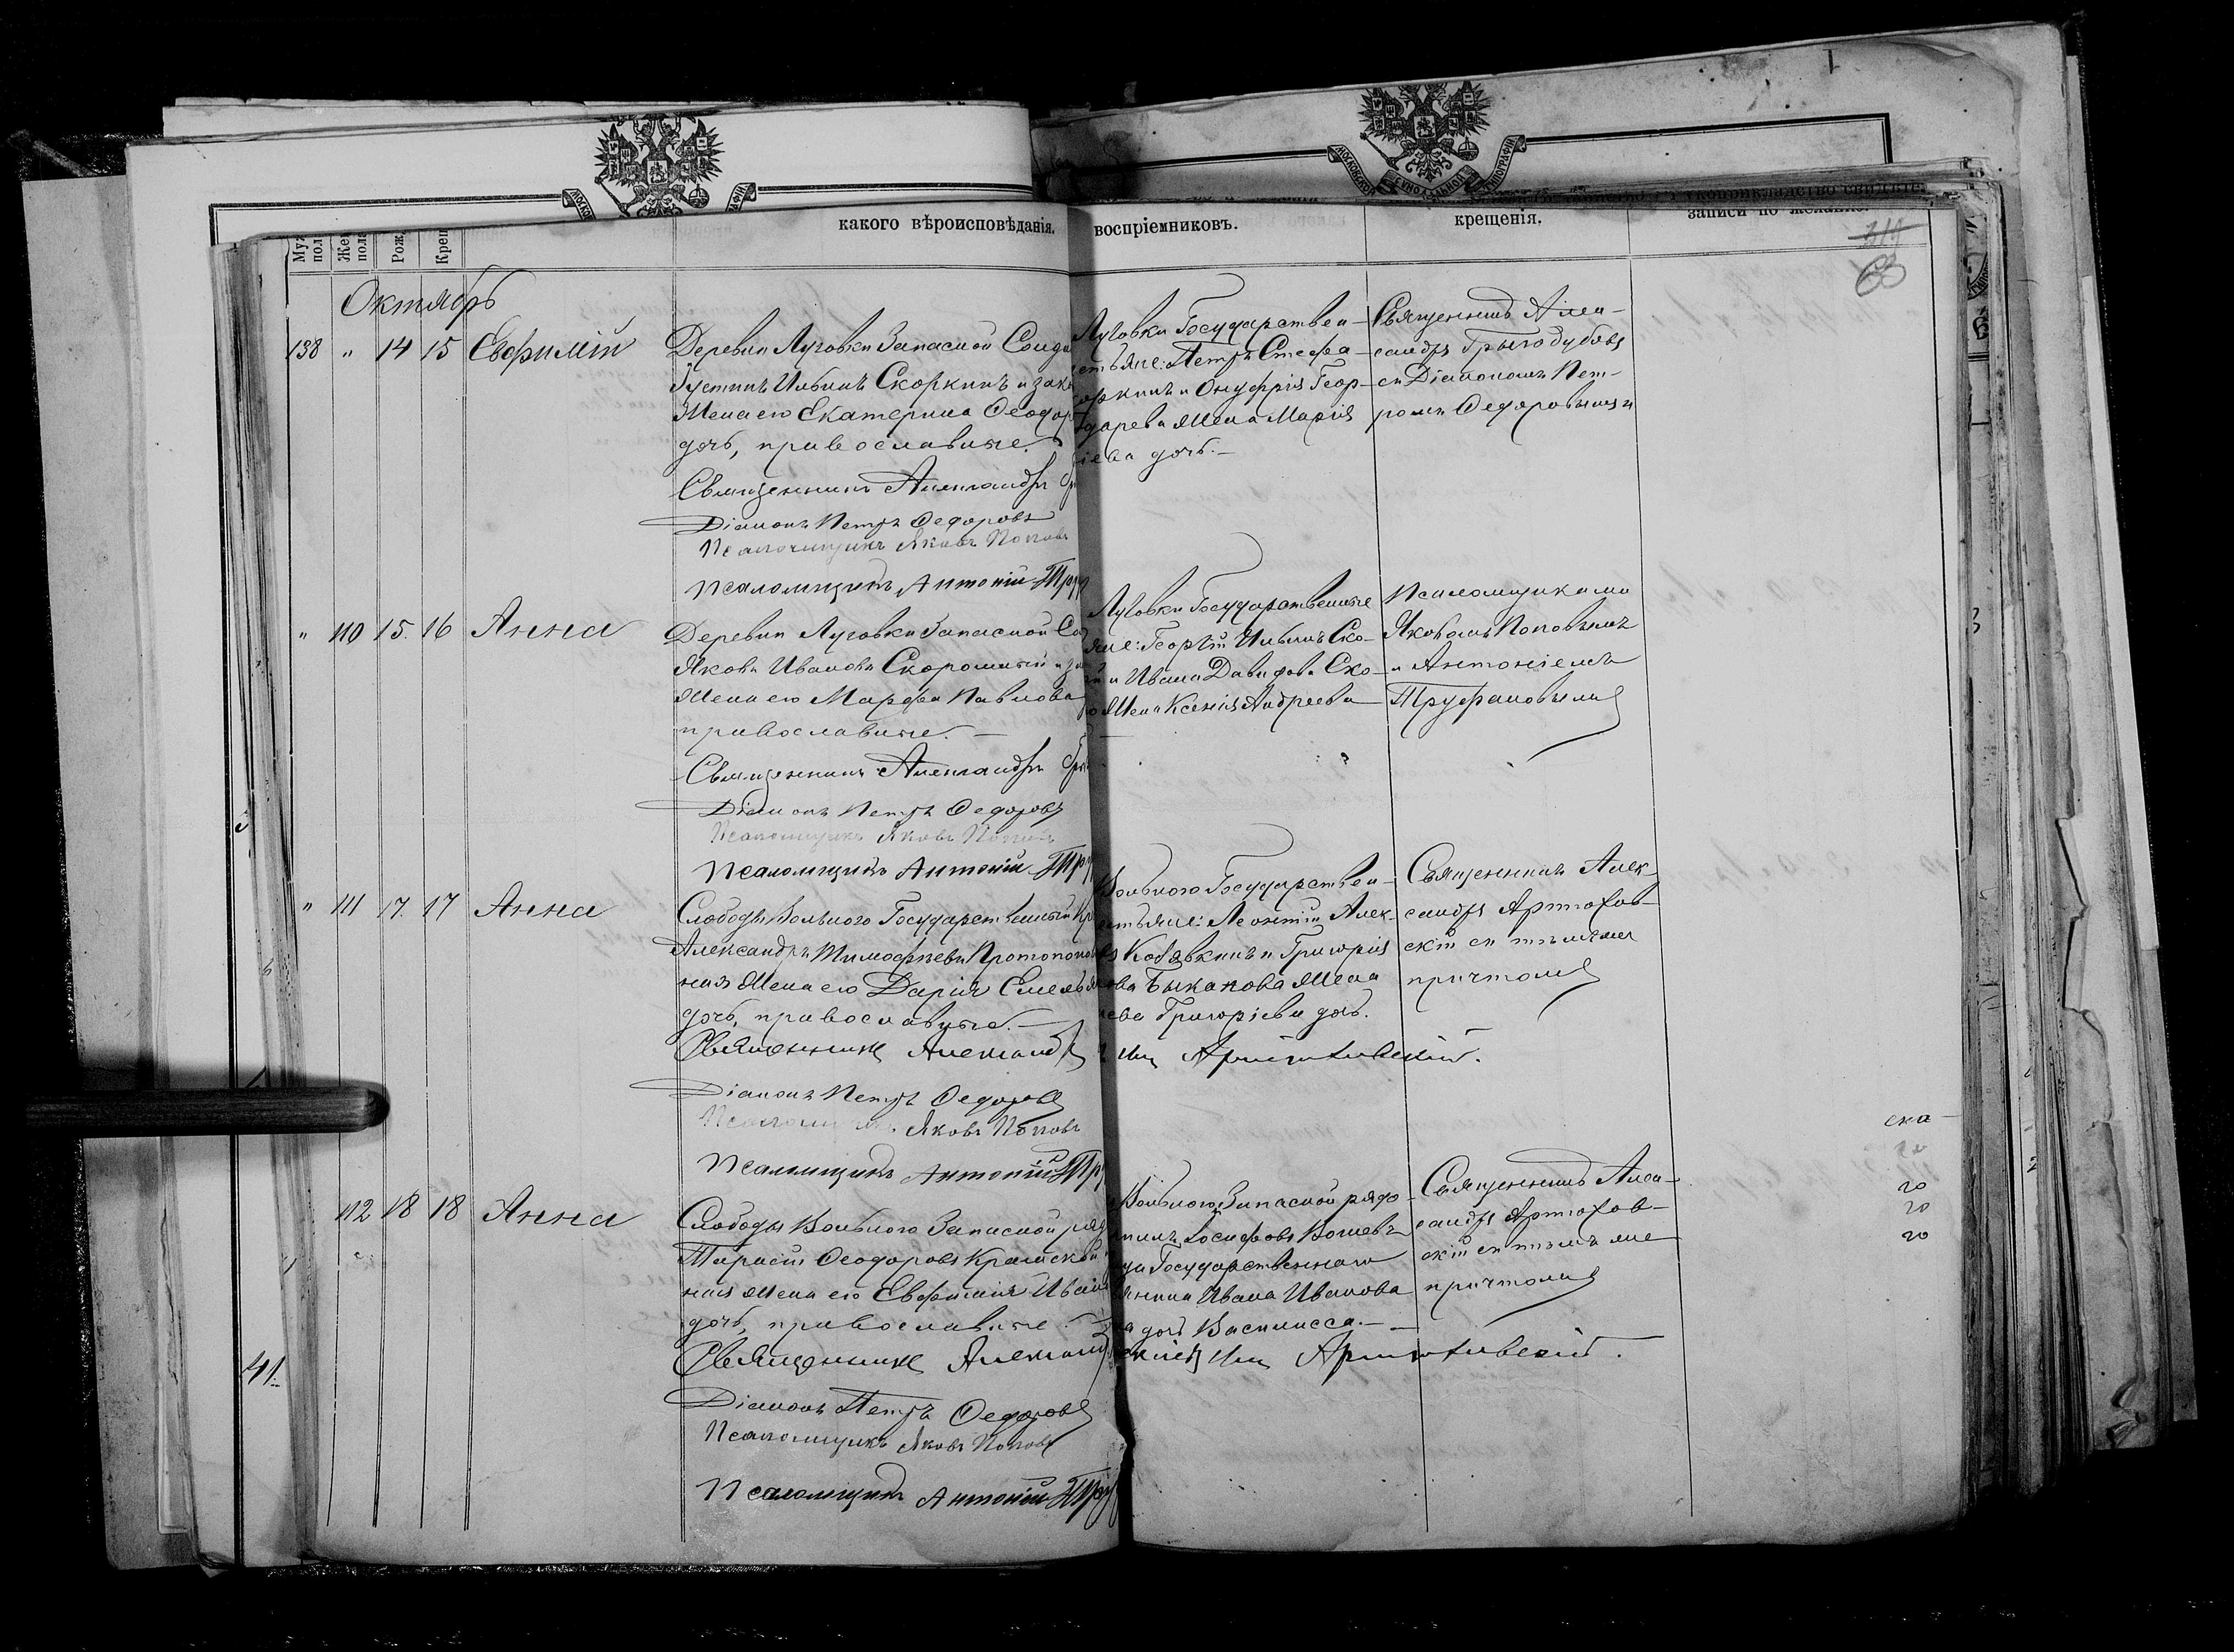 МОСКОВСКОЙ СУНОДАЛЬНОЙ ТИПОГРАФІИ
какого вѣроисповѣданія.
воспріемниковъ.
крещенія.
записи по желанію.
63
Октябрь
138 " 14 15 Евфимій
Деревни Луговки Запасной Солда
Густинъ Ильинъ Скоркинъ и зак
жена его Екатерина Ѳеодор
дочь, православные.
Священникъ Александръ
Діаконъ Петръ Ѳедоровъ
Псаломщикъ Яковъ Поповъ
Псаломщикъ Антоній Тру
Луговки Государствен-
стьяне: Петръ Стефа-
оркинъ и Онуфрія Геор-
дарева жена Марія
іева дочь.-
Священникъ Алек-
сандръ Грыгодубовъ
съ Діакономъ Пет-
ромъ Ѳедоровымъ
" 110 15. 16 Анна
Деревни Луговки Запасной Со
Яковъ Ивановъ Скоромный и за
жена его Марфа Павлова
православные.-
Священникъ Александръ
Діаконъ Петръ Ѳедоровъ
Псаломщикъ Яковъ Поповъ
Псаломщикъ Антоній Тру
Луговки Государственные
яне: Георгій Ильинъ Ско-
й и Ивана Давидова Ско-
го жена Ксенія Андреева
Псаломщиками
Яковомъ Поповымъ
и Антоніемъ
Труфановымъ
" 111 17. 17 Анна
Слободы Вольного Государственный Кр
Александръ Тимофѣевъ Протопопов
ная жена его Дарія Емелья
дочь, православные.-
Священникъ Александръ
Діаконъ Петръ Ѳедоровъ
Яковъ Поповъ
Псаломщикъ Антоній Тру
Вольного Государствен-
стьяне: Леонтій Алек-
въ Кобявкинъ и Григорія
ова Быканова жена
ева Григоріева дочь.
Священникъ Алек-
сандръ Артюхов-
скій съ тѣмъ же
причтомъ
112 18 18 Анна
Слободы Вольного Запасной ряд
Тарасій Ѳеодоровъ Крамской
ная жена его Евфимія Иван
дочь, православные.-
Священникъ Александ
Діаконъ Петръ Ѳедоровъ
Псаломщикъ Яковъ Поповъ
Псаломщикъ Антоній Тру
Вольного Запасной рядо-
Іосифовъ
Государственнаго
янина Ивана Иванова
дочь Василисса.-
Священникъ Алек-
сандръ Артюхов-
скій съ тѣмъ же
причтомъ
ска-
го
го
го
41.